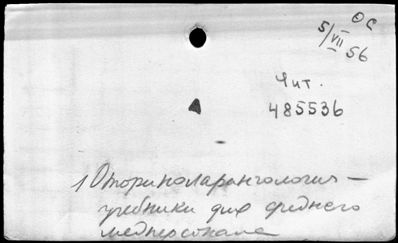 ОС
5/VII 56
Чит.
485536
1 Оториноларингология —
учебники для среднего
медперсонала